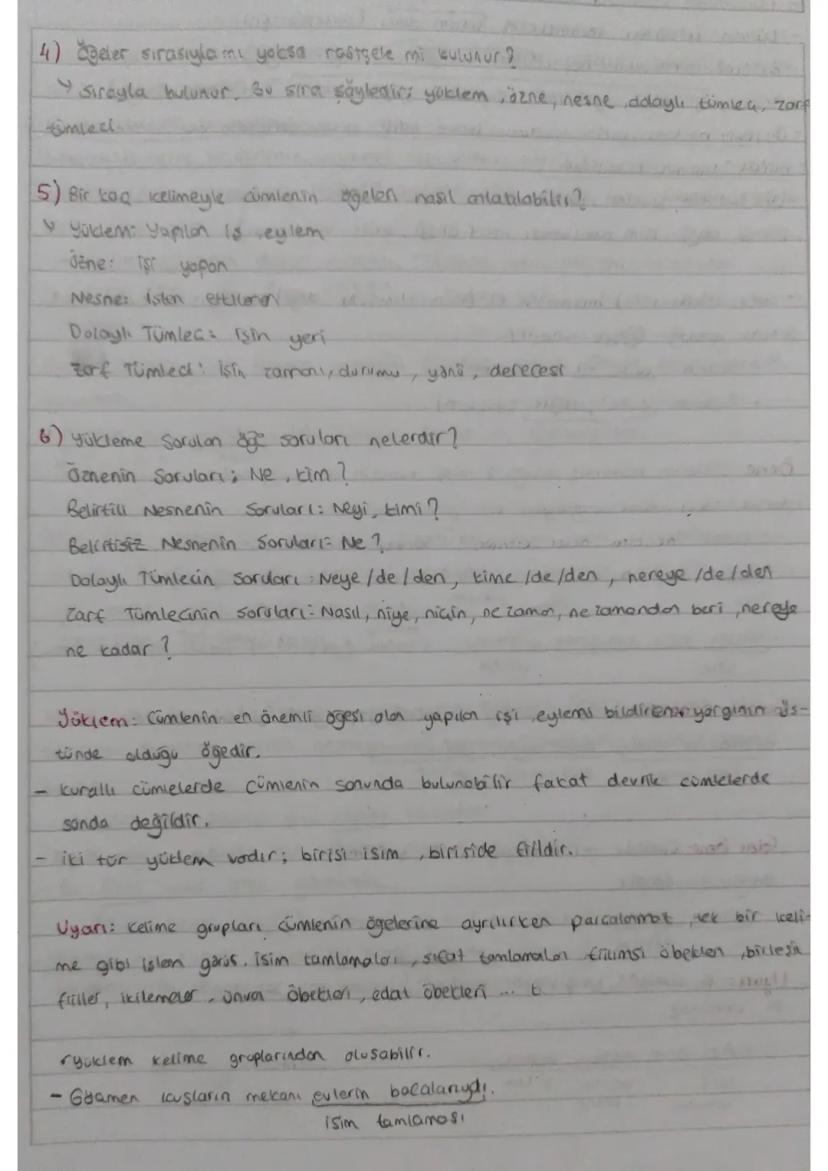 4) Öğeler sırasıyla mı yoksa rastgele mi bulunur?
Sırayla bulunur. Bu sıra şöyledir; yüklem, özne, nesne, dolaylı tümleç, zarf
tümleci
5) Bir kaç kelimeyle cümlenin öğeleri nasıl anlatılabilir?
Yüklem: Yapılan iş, eylem
Özne: işi yapan
Nesne: işten etkilenen
Dolaylı Tümleç: işin yeri
Zarf Tümleci: işin zamanı, durumu, yönü, derecesi
6) Yükleme Sorulan öğe soruları nelerdir?
Öznenin Soruları; Ne, kim?
Belirtili Nesnenin Soruları: Neyi, kimi?
Belirtisiz Nesnenin Soruları: Ne?
Dolaylı Tümlecin Soruları: Neye/de/den, kime/de/den, nereye/de/den
Zarf Tümlecinin soruları: Nasıl, niye, niçin, ne zaman, ne zamandan beri, nereye
ne kadar?
Yüklem: Cümlenin en önemli öğesi olan yapılan işi, eylemi bildiren yargının üs-
tünde olduğu öğedir.
- kurallı cümlelerde cümlenin sonunda bulunabilir fakat devrik cümlelerde
sonda değildir.
- iki tür yüklem vardır; birisi isim, biriside fiildir.
Uyarı: kelime grupları cümlenin ögelerine ayrılırken parcalanmaz, tek bir keli-
me gibi işlem görür. isim tamlamaları, sıfat tamlamaları fiilimsi öbekleri, birleşik
fiiller, ikilemeler, ünvan öbekleri, edat öbekleri ...
yüklem kelime gruplarından oluşabilir.
- Göçmen kuşların mekanı evlerin bacalarıydı.
isim tamlaması